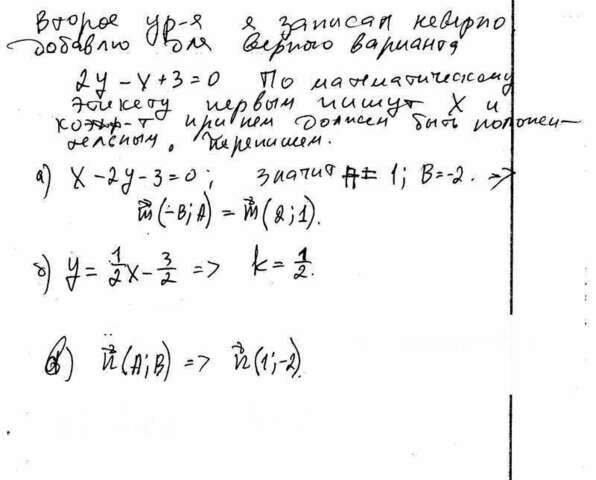 Второе ур-я я записал неверно
добавлю для верного варианта
2y - x + 3 = 0 По математическому
этикету первым пишут x и
коэф-т при нем должен быть положи-
тельным. Перепишем.
а) x - 2y - 3 = 0; значит A = 1; B = -2. =>
m⃗(-B; A) = m⃗(2; 1).
б) y = 1/2 x - 3/2 => k = 1/2.
в) n⃗(A; B) => n⃗(1; -2).